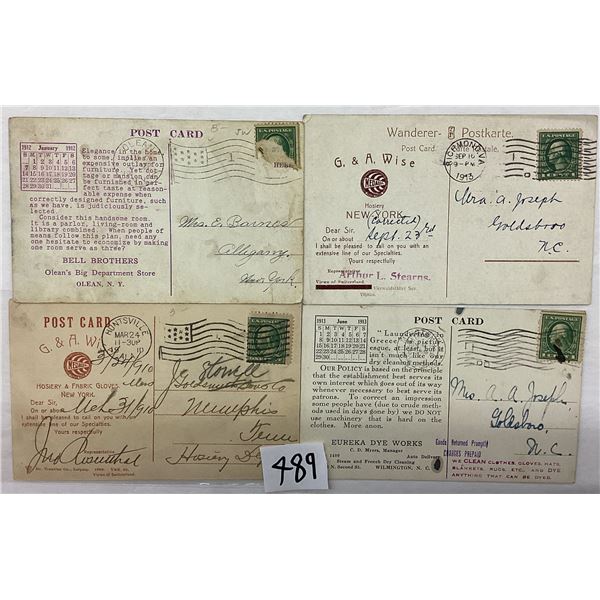 POST CARD
5- JW
1912 January 1912
S M T W T F S
1 2 3 4 5 6
7 8 9 10 11 12 13
14 15 16 17 18 19 20
21 22 23 24 25 26 27
28 29 30 31
Elegance in the home,
to some, implies an
expensive outlay for
furniture. Yet cot-
tage or mansion can
be furnished in per-
fect taste at reason-
able expense when
correctly designed furniture, such
as we have, is judiciously se-
lected.
Consider this handsome room.
It is a parlor, living-room and
library combined. When people of
means follow this plan, need any
one hesitate to economize by making
one room serve as three?
BELL BROTHERS
Olean's Big Department Store
OLEAN, N. Y.
U.S. POSTAGE
Mrs. E. Barnes
Allegany
New York.
Wanderer- Postkarte.
Post Card.
G. & A. Wise
Hosiery
NEW YORK.
Dear Sir,
On or about Sept. 23rd
I shall be pleased to call on you with an
extensive line of our Specialties.
Yours respectfully
Representative
Arthur L. Stearns.
Views of Switzerland
RICHMOND, VA.
SEP 16
9-PM
1913
Mrs. A. Joseph
Goldsboro
N.C.
POST CARD
G. & A. Wise
HOSIERY & FABRIC GLOVES.
NEW YORK.
Dear Sir,
On or about Mch 31/1910
I shall be pleased to call on you with an
extensive line of our Specialties.
Yours respectfully
Representative
Jno Rosenthal
Views of Switzerland.
HUNTSVILLE
MAR 24
11-30P
Memphis
Tenn
Hosiery
POST CARD
1913 June 1913
S M T W T F S
1 2 3 4 5 6 7
8 9 10 11 12 13 14
15 16 17 18 19 20 21
22 23 24 25 26 27 28
29 30
"Laundering in
Greece" is pictur-
esque, at least, but it
isn't much like our
dry cleaning methods.
OUR POLICY is based on the principle
that the establishment best serves its
own interest which goes out of its way
whenever necessary to be of worth to its
patrons. To correct an impression
some people have (due to crude meth-
ods used in days gone by) we DO NOT
use machinery that is hard on the
clothes. More anon.
EUREKA DYE WORKS
C. D. Myers, Manager
Auto Delivery
Steam and French Dry Cleaning
N. Second St. WILMINGTON, N. C.
Mrs. A. A. Joseph,
Goldsboro,
N.C.
Goods Returned Promptly
CHARGES PREPAID
WE CLEAN CLOTHES, GLOVES, HATS,
BLANKETS, RUGS, ETC., AND DYE
ANYTHING THAT CAN BE DYED.
489